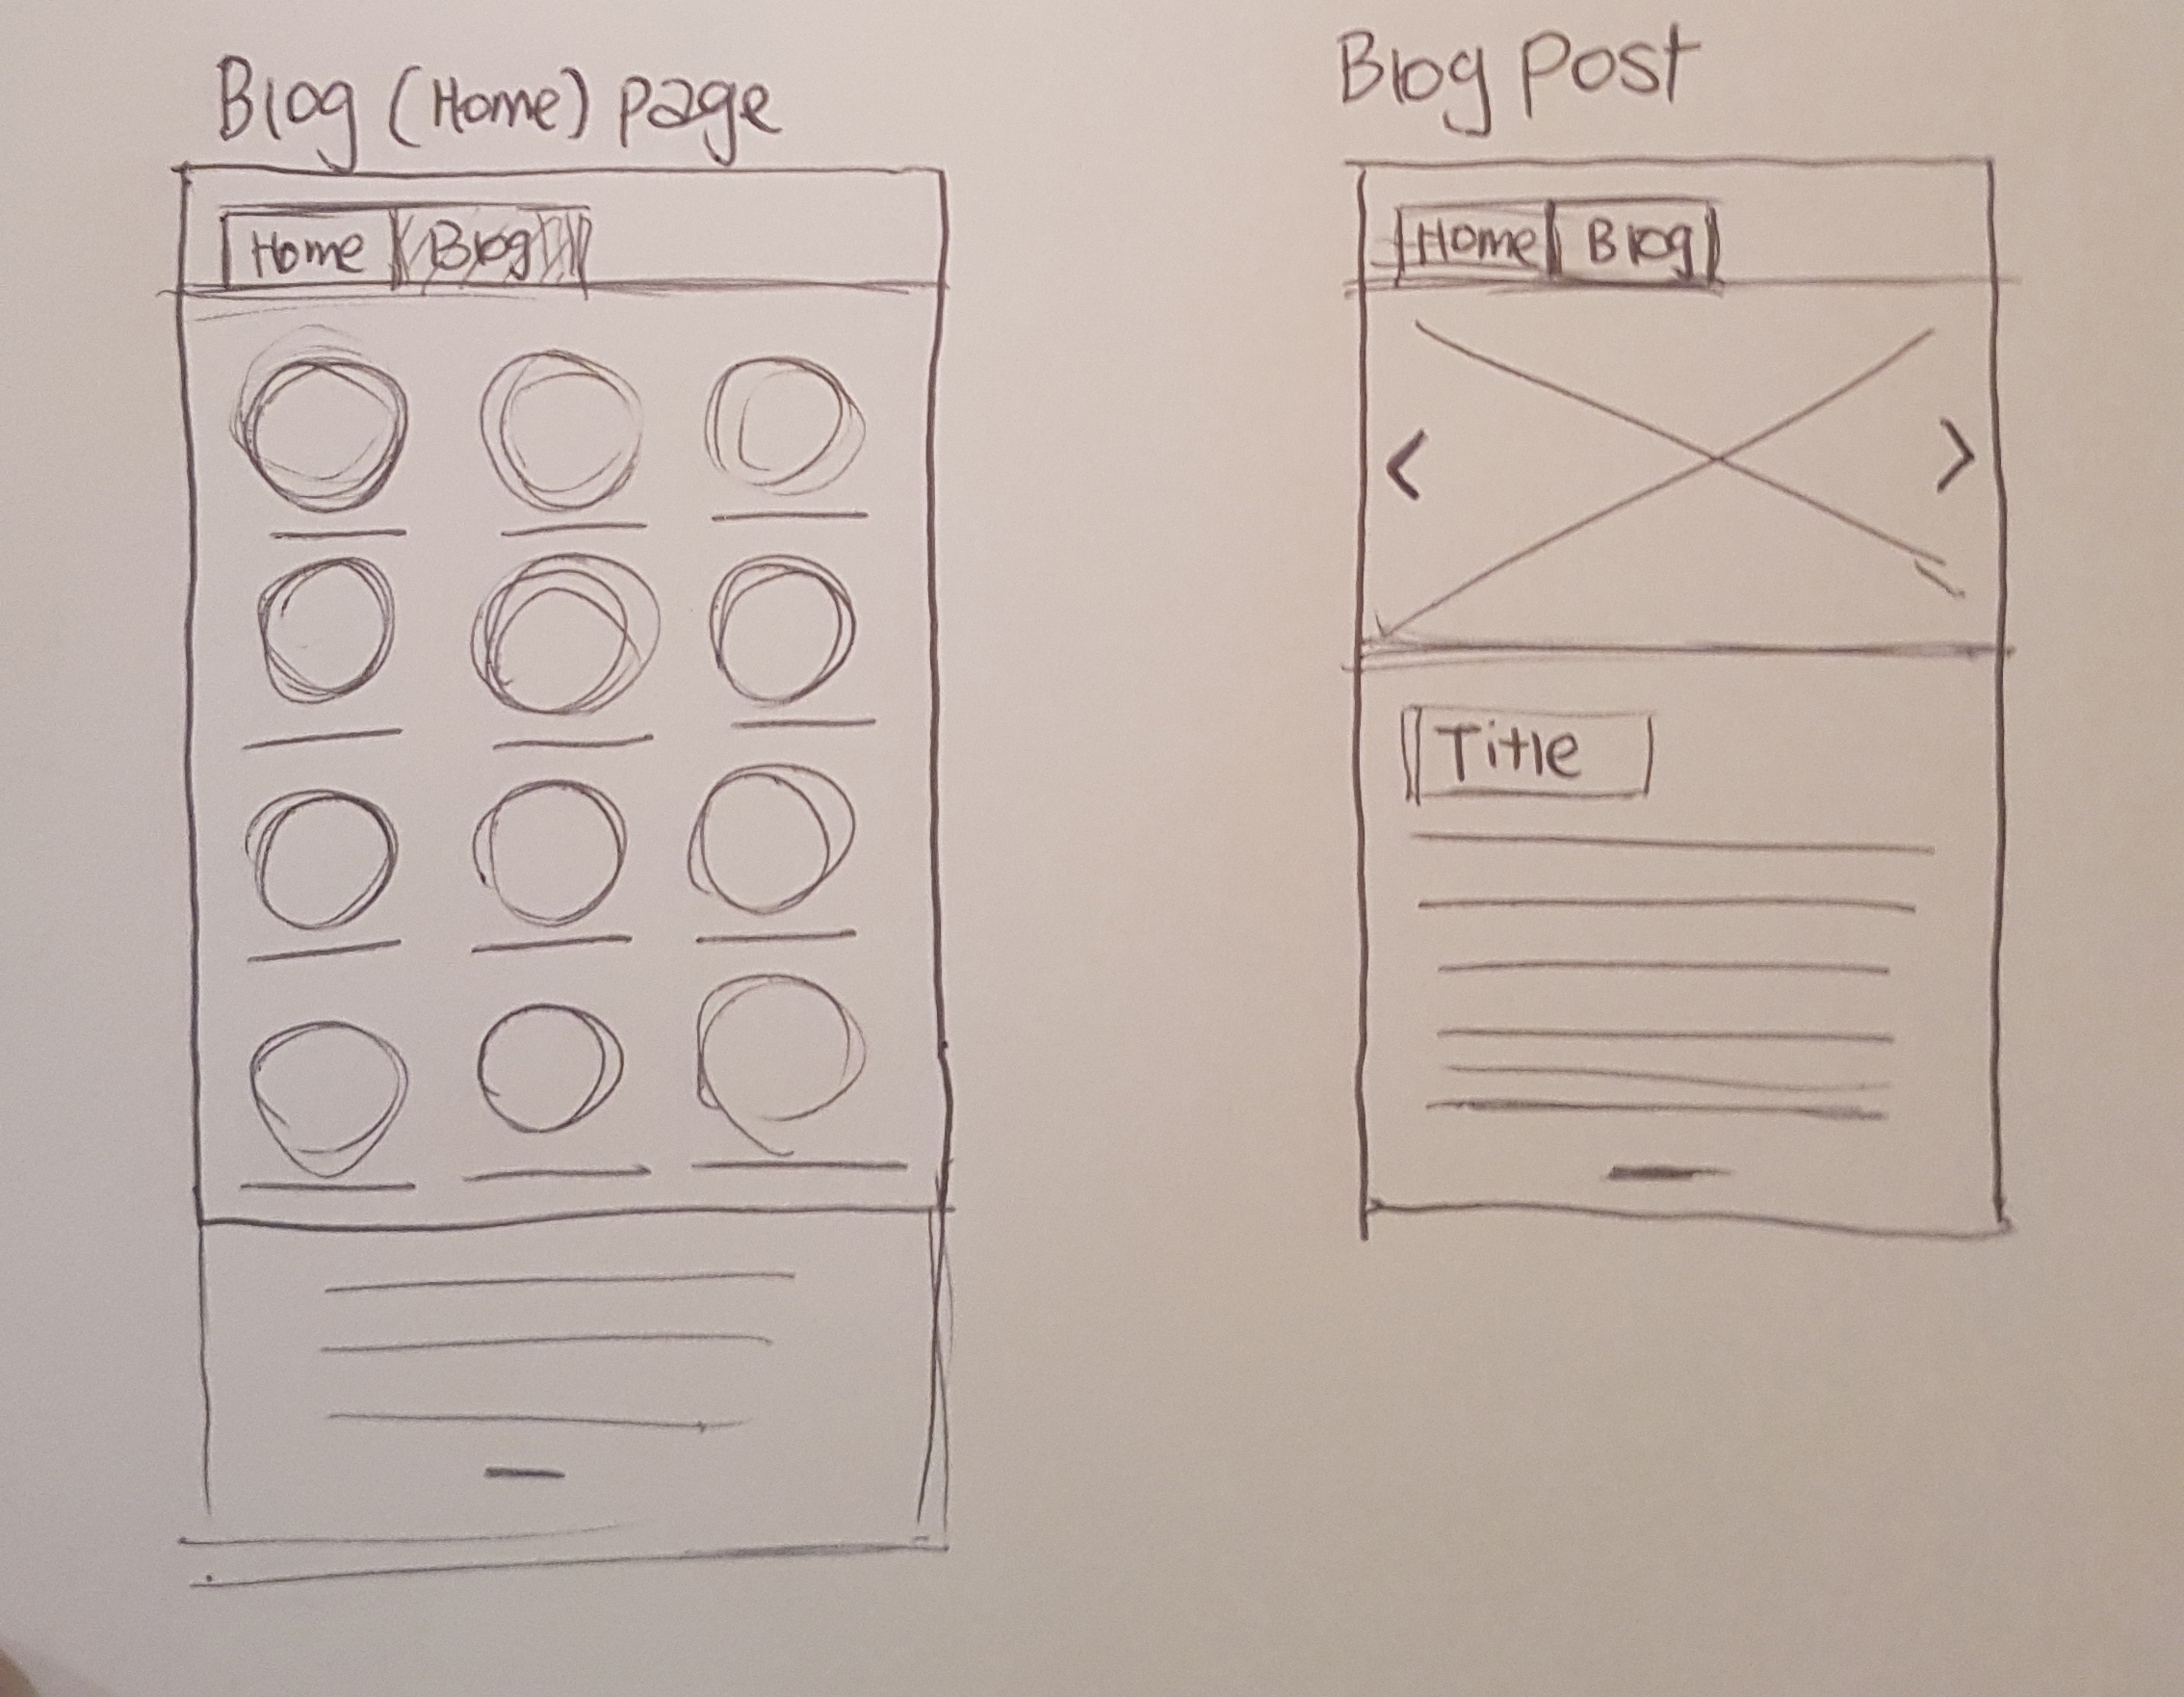 Blog (Home) page
Home Blog
Blog Post
Home Blog
Title